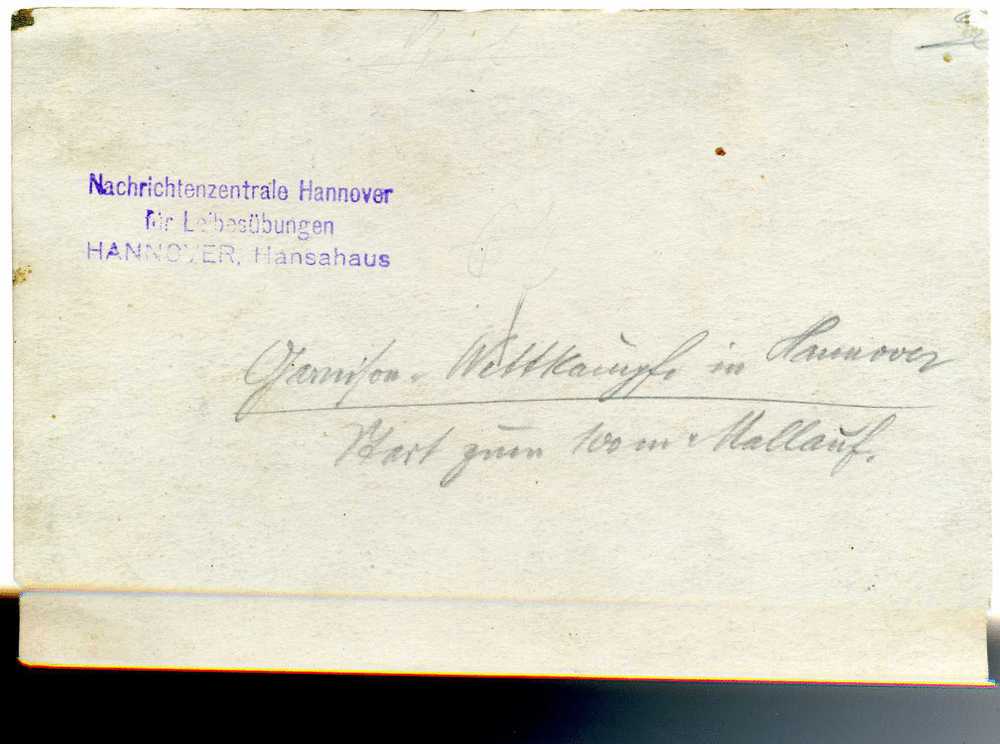 Nachrichtenzentrale Hannover
für Leibesübungen
HANNOVER, Hansahaus
Garnison-Wettkämpfe in Hannover
Start zum 100 m